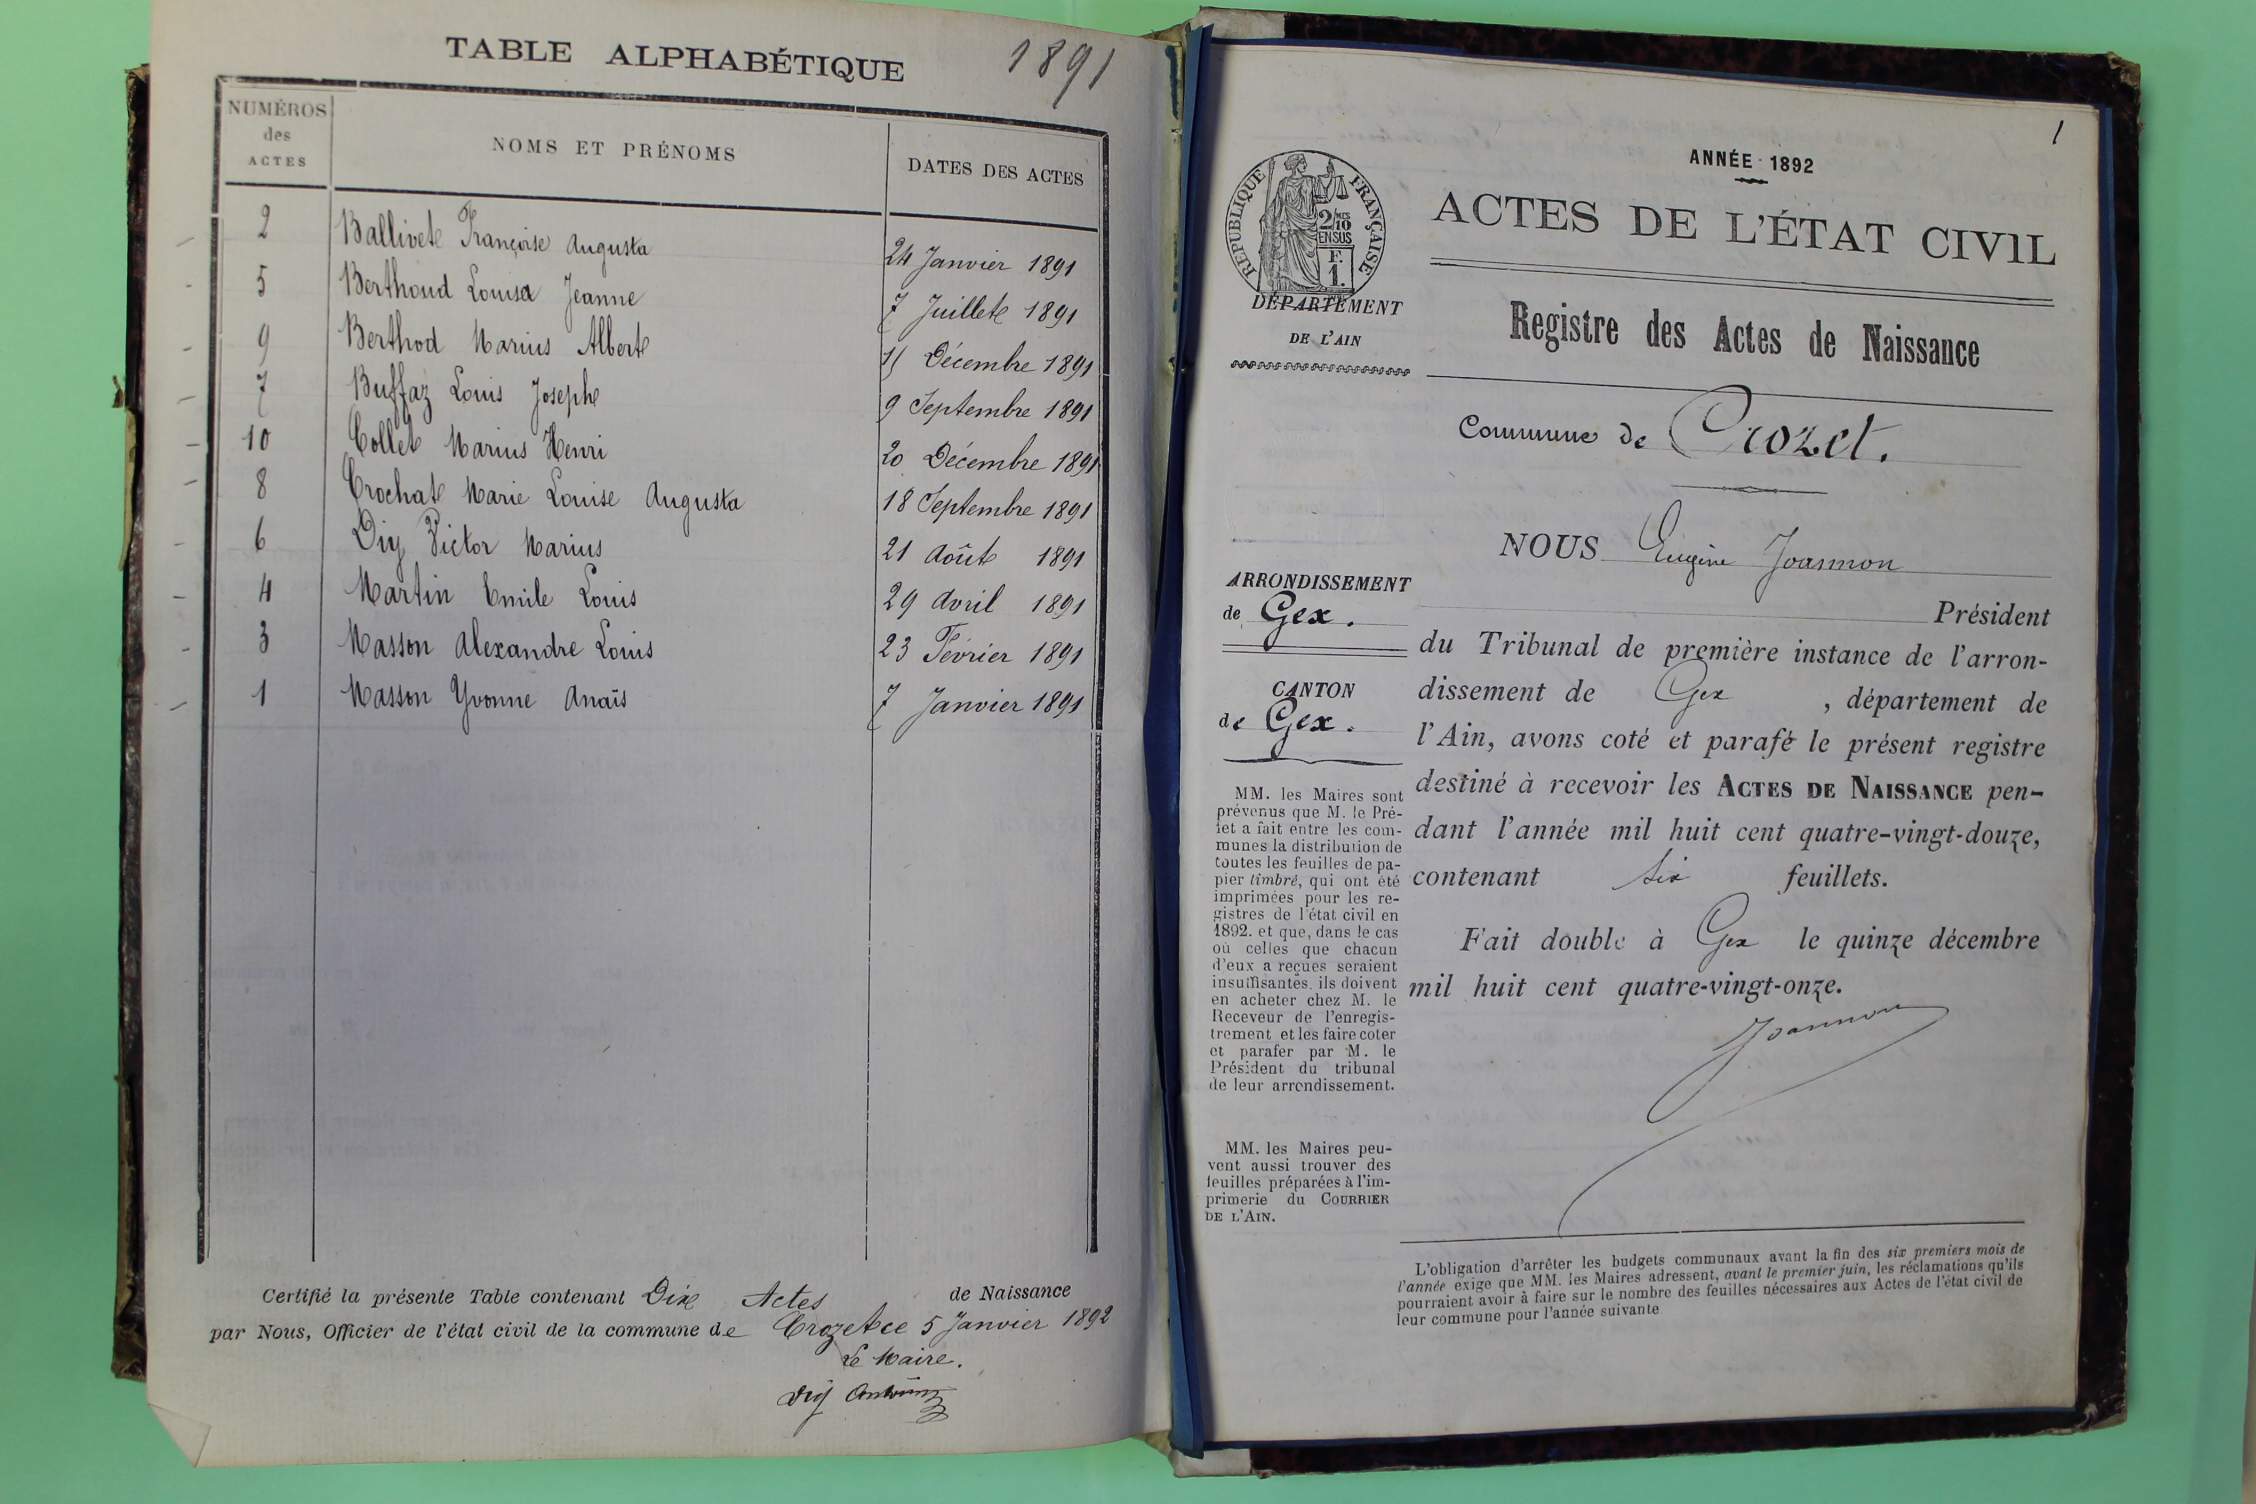 TABLE ALPHABÉTIQUE 1891
NUMÉROS des ACTES NOMS ET PRÉNOMS DATES DES ACTES
2 Ballivet Françoise Augusta 24 Janvier 1891
5 Berthoud Louisa Jeanne 7 Juillet 1891
9 Berthod Marius Albert 11 Décembre 1891
7 Buffaz Louis Joseph 9 Septembre 1891
10 Collet Marius Henri 20 Décembre 1891
8 Crochat Marie Louise Augusta 18 Septembre 1891
6 Diy Victor Marius 21 Août 1891
4 Martin Emile Louis 29 Avril 1891
3 Masson Alexandre Louis 23 Février 1891
1 Masson Yvonne Anaïs 7 Janvier 1891
Certifié la présente Table contenant Dix Actes de Naissance
par Nous, Officier de l'état civil de la commune de Crozet ce 5 Janvier 1892
Le Maire.
Diy
1
ANNÉE 1892
RÉPUBLIQUE FRANÇAISE
2/10MES
EN SUS
F.
1.
ACTES DE L'ÉTAT CIVIL
DÉPARTEMENT
DE L'AIN
Registre des Actes de Naissance
Commune de Crozet.
NOUS Eugène Joannon
Président
du Tribunal de première instance de l'arron-
dissement de Gex , département de
l'Ain, avons coté et parafé le présent registre
destiné à recevoir les ACTES DE NAISSANCE pen-
dant l'année mil huit cent quatre-vingt-douze,
contenant six feuillets.
Fait double à Gex le quinze décembre
mil huit cent quatre-vingt-onze.
Joannon
ARRONDISSEMENT
de Gex.
CANTON
de Gex.
MM. les Maires sont
prévenus que M. le Pré-
fet a fait entre les com-
munes la distribution de
toutes les feuilles de pa-
pier timbré, qui ont été
imprimées pour les re-
gistres de l'état civil en
1892. et que, dans le cas
où celles que chacun
d'eux a reçues seraient
insuffisantes, ils doivent
en acheter chez M. le
Receveur de l'enregis-
trement et les faire coter
et parafer par M. le
Président du tribunal
de leur arrondissement.
MM. les Maires peu-
vent aussi trouver des
feuilles préparées à l'im-
primerie du COURRIER
DE L'AIN.
L'obligation d'arrêter les budgets communaux avant la fin des six premiers mois de
l'année exige que MM. les Maires adressent, avant le premier juin, les réclamations qu'ils
pourraient avoir à faire sur le nombre des feuilles nécessaires aux Actes de l'état civil de
leur commune pour l'année suivante